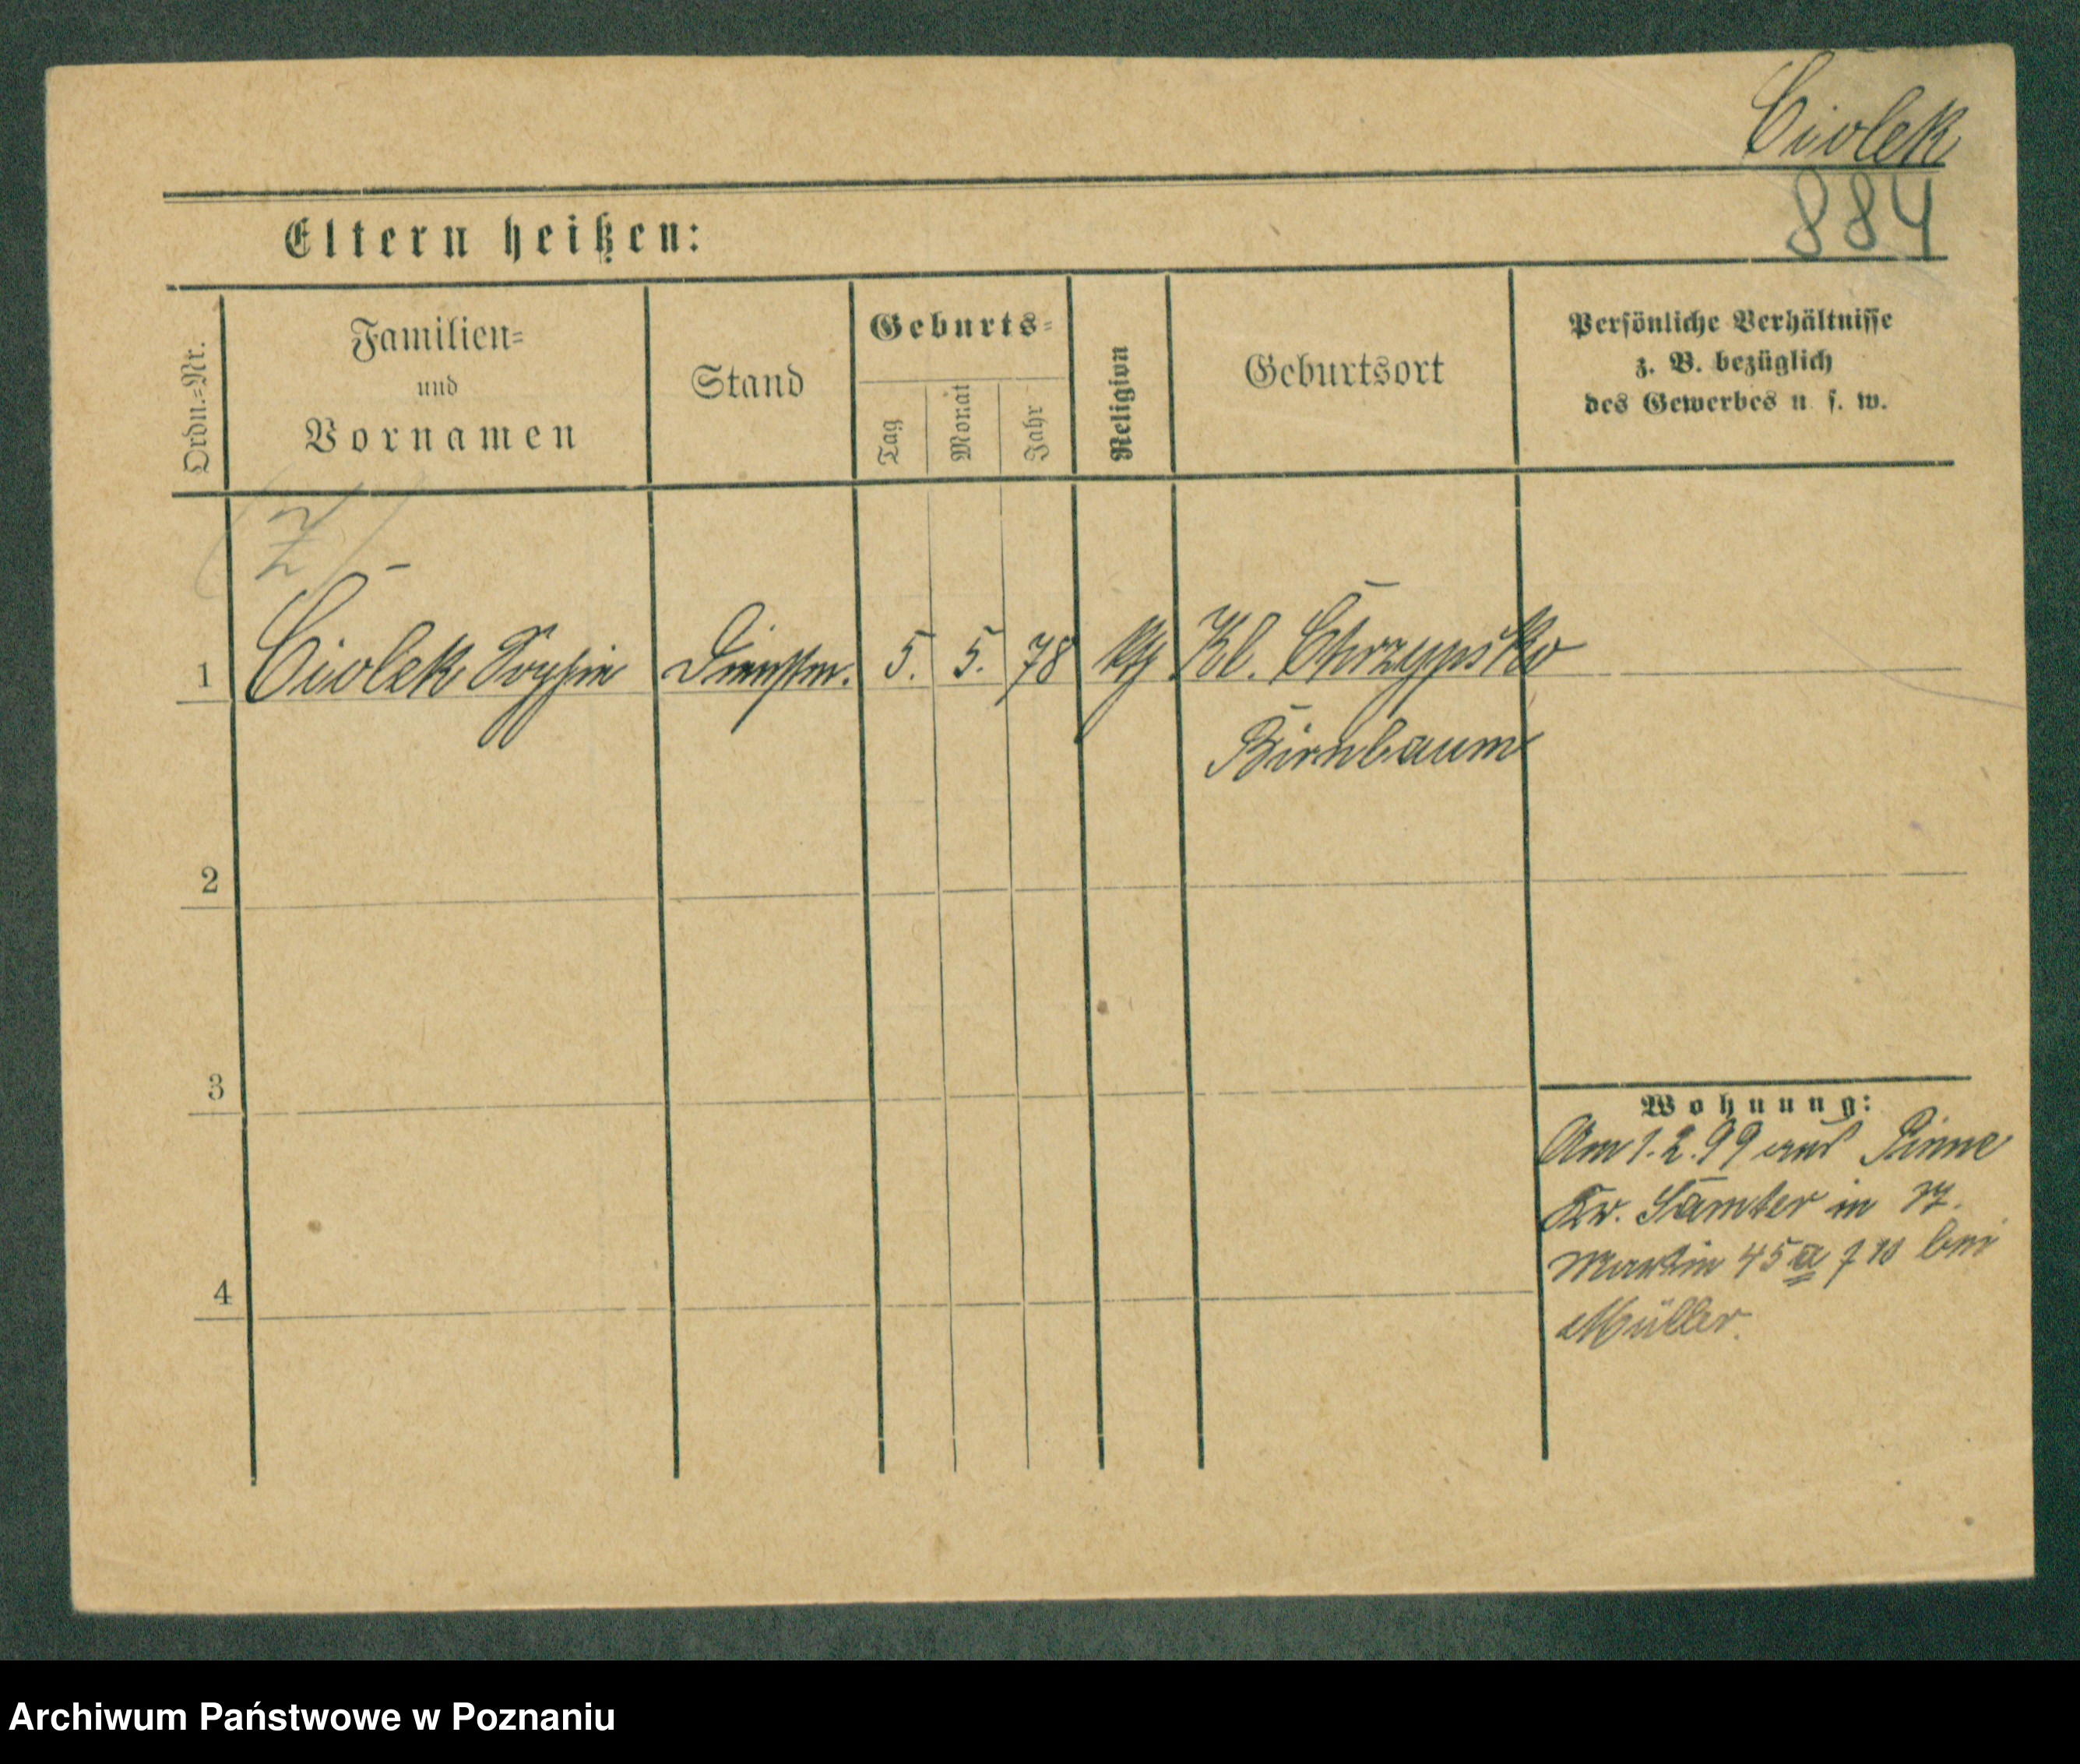 Ciolek
884
Eltern heißen:
Ordn.=Nr.
Familien=
und
Vornamen
Stand
Geburts=
Tag
Monat
Jahr
Religion
Geburtsort
Persönliche Verhältnisse
z. B. bezüglich
des Gewerbes u. s. w.
1 Ciolek Sophie Dienstm. 5. 5. 78 kth. Kl. Chrzypsko
Birnbaum
2
3
4
Wohnung:
Am 1.2.99 aus Pinne
Kr. Samter in
Martin 45 a bei
Müller.
Archiwum Państwowe w Poznaniu